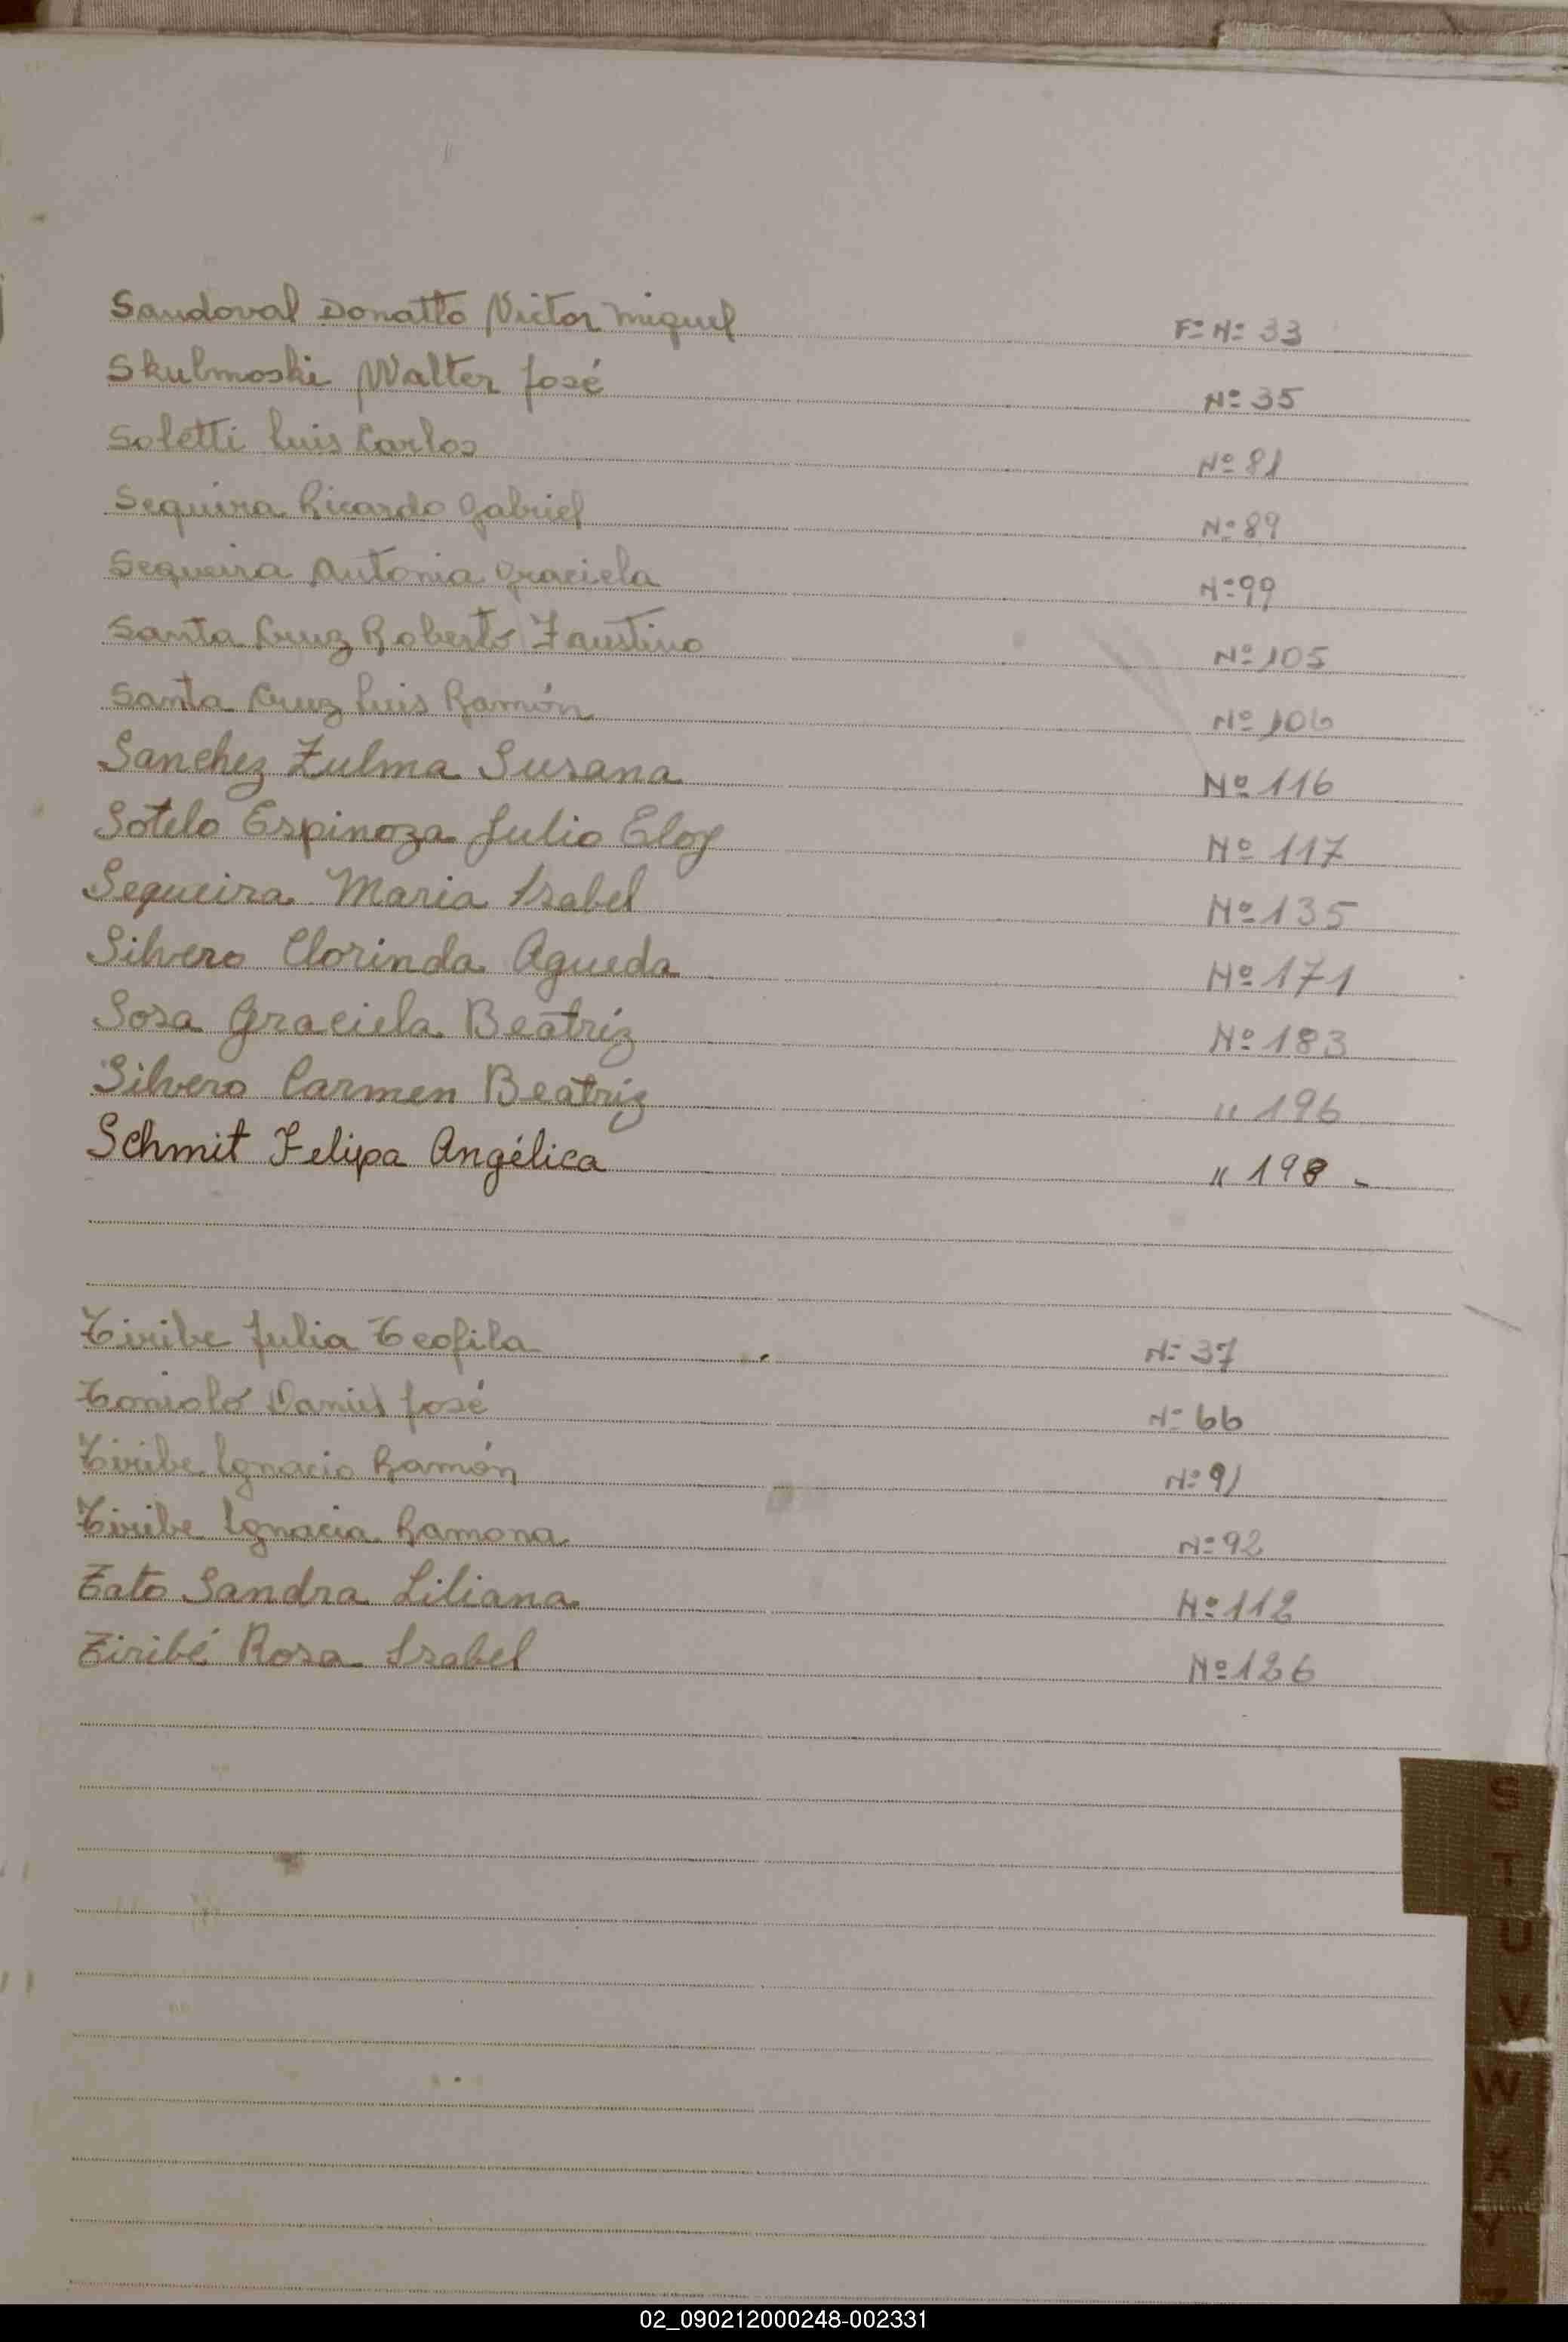 Sandoval Donatto Victor Miguel F=Nº 33
Skulmoski Walter José Nº 35
Soletti Luis Carlos Nº 81
Sequeira Ricardo Gabriel Nº 89
Sequeira Antonia Graciela Nº 99
Santa Cruz Roberto Faustino Nº 105
Santa Cruz Luis Ramón Nº 106
Sanchez Zulma Susana Nº 116
Sotelo Espinoza Julio Eloy Nº 117
Sequeira Maria Isabel Nº 135
Silvero Clorinda Agueda Nº 171
Sosa Graciela Beatríz Nº 183
Silvero Carmen Beatriz " 196
Schmit Felipa Angélica " 198 -
Tiribe Julia Teofila Nº 37
Toniolo Daniel José Nº 66
Tiribe Ignacio Ramón Nº 91
Tiribe Ignacia Ramona Nº 92
Tato Sandra Liliana Nº 112
Tiribé Rosa Isabel Nº 126
S
T
U
V
W
X
Y
02_090212000248-002331